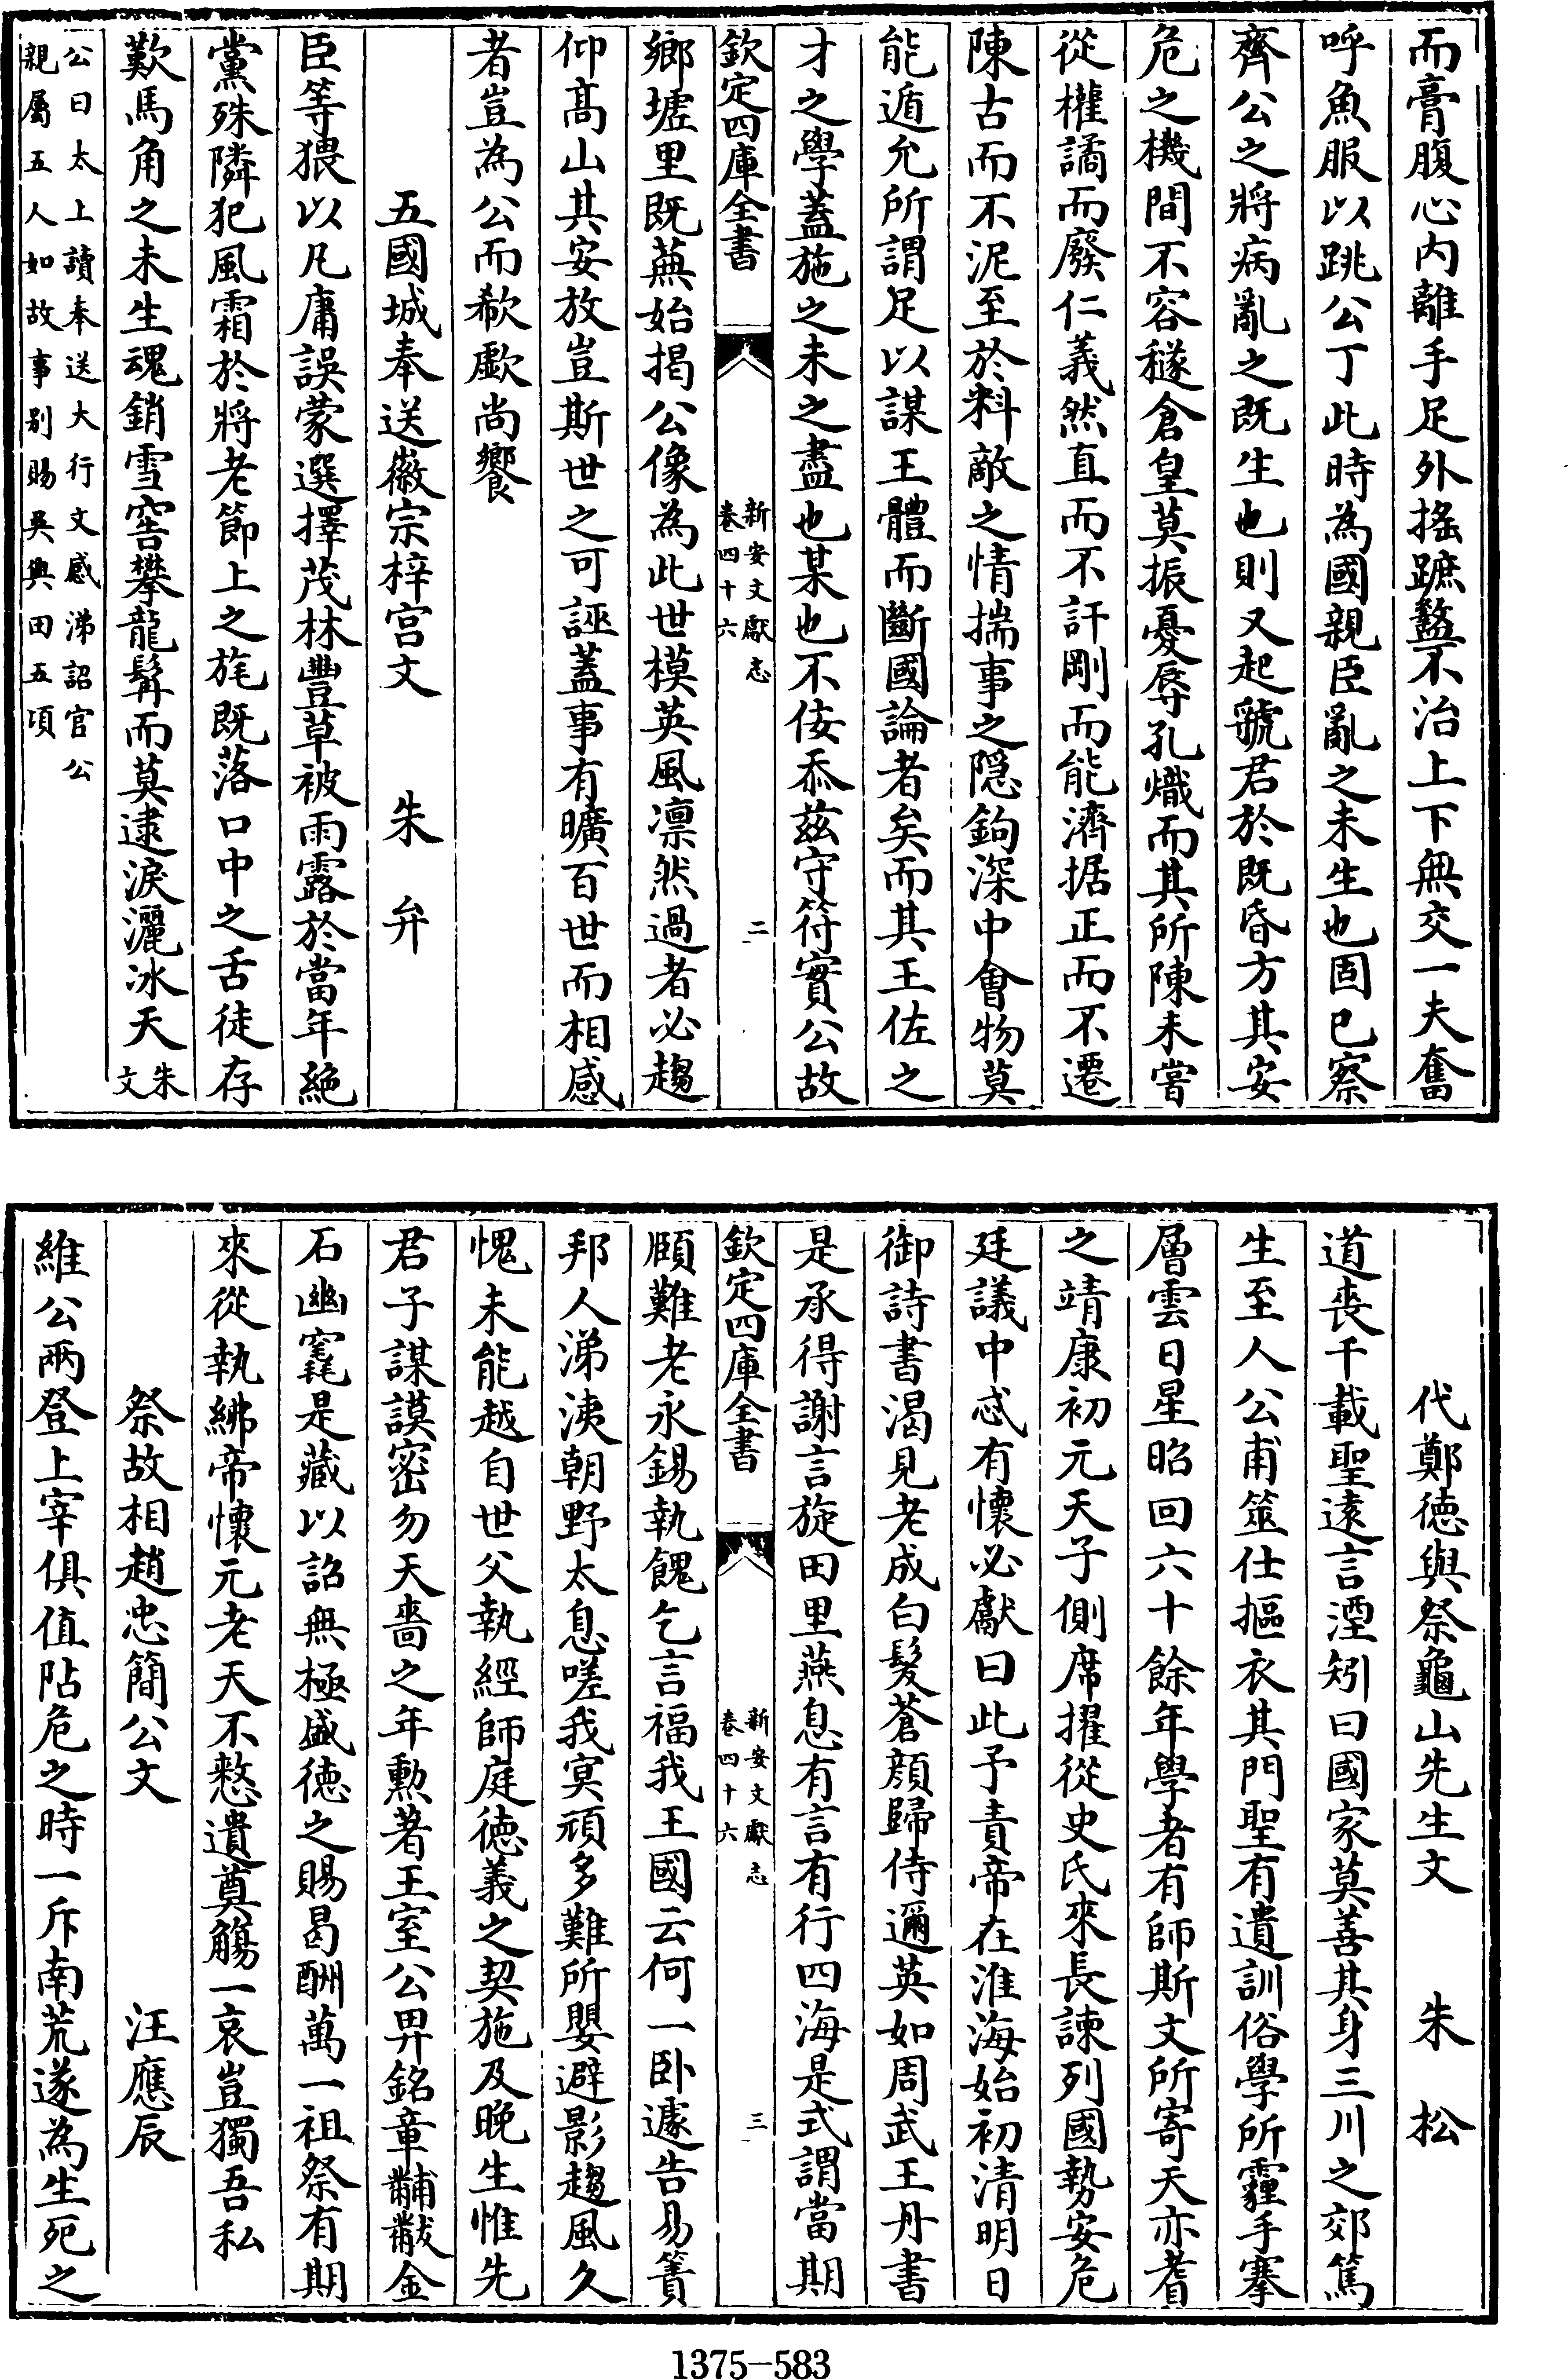 而膏腹心内離手足外搖蹠盭不治上下無交一夫奮
呼魚服以跳公丁此時為國親臣亂之未生也固已察
齊公之將病亂之既生也則又起虢君於既昏方其安
危之機間不容䆳倉皇莫振憂辱孔熾而其所陳未嘗
從權譎而廢仁義然直而不訐剛而能濟据正而不遷
陳古而不泥至於料敵之情揣事之隠鉤深中會物莫
能遁允所謂足以謀王體而斷國論者矣而其王佐之
才之學蓋施之未之盡也某也不佞忝茲守符實公故
欽定四庫全書
新安文獻志
卷四十六
二
鄉墟里既蕪始揭公像為此世模英風凛然過者必趨
仰髙山其安放豈斯世之可誣蓋事有曠百世而相感
者豈為公而欷歔尚饗
五國城奉送徽宗梓宫文 朱弁
臣等猥以凡庸誤蒙選擇茂林豐草被雨露於當年絶
黨殊隣犯風霜於將老節上之旄既落口中之舌徒存
歎馬角之未生魂銷雪窖攀龍髯而莫逮淚灑冰天朱文
公曰太上讀奉送大行文感涕詔官公
親屬五人如故事别賜吳興田五項
代鄭徳與祭龜山先生文 朱松
道喪千載聖遠言湮矧曰國家莫善其身三川之郊篤
生至人公甫筮仕摳衣其門聖有遺訓俗學所霾手搴
層雲日星昭回六十餘年學者有師斯文所寄天亦耆
之靖康初元天子側席擢從史氏來長諫列國勢安危
廷議中忒有懷必獻曰此予責帝在淮海始初清明日
御詩書渴見老成白髮蒼顔歸侍邇英如周武王丹書
是承得謝言旋田里燕息有言有行四海是式謂當期
欽定四庫全書
新安文獻志
卷四十六
三
頤難老永錫執餽乞言福我王國云何一卧遽告易簀
邦人涕洟朝野太息嗟我㝠頑多難所嬰避影趨風久
愧未能越自世父執經師庭徳義之契施及晚生惟先
君子謀謨密勿天嗇之年勳著王室公畀銘章黼黻金
石幽竁是藏以詔無極盛徳之賜曷酬萬一祖祭有期
來從執紼帝懷元老天不憗遺奠觴一哀豈獨吾私
祭故相趙忠簡公文 汪應辰
維公兩登上宰俱值阽危之時一斥南荒遂為生死之
1375-583